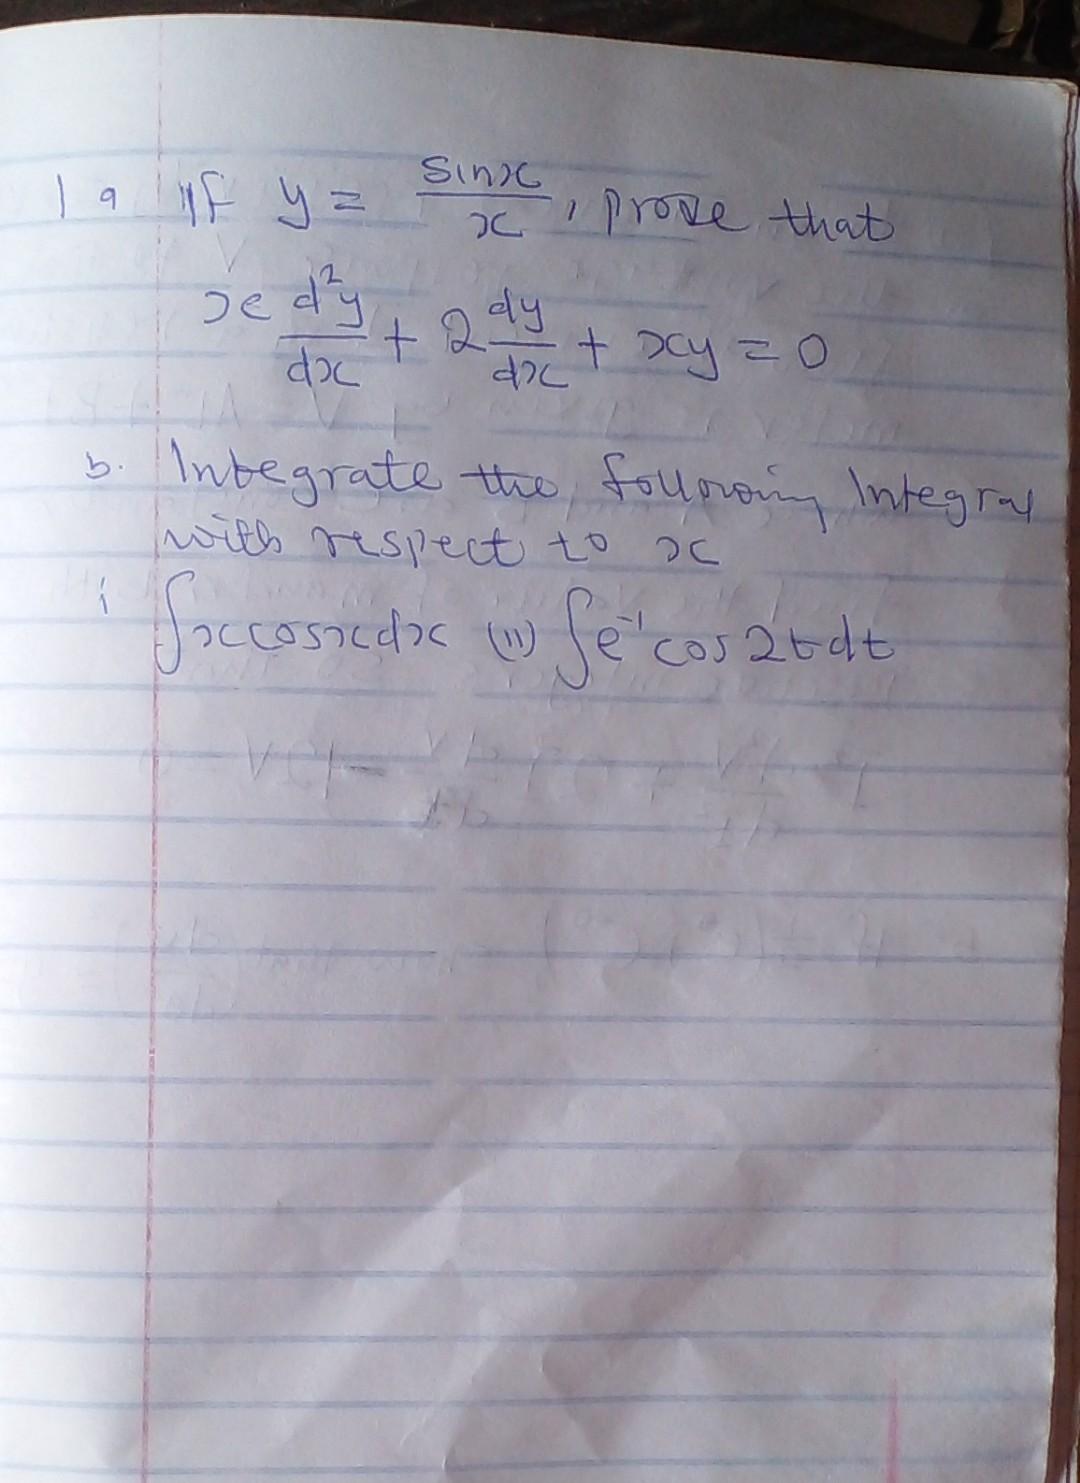 1a If y = sinx/x, prove that
x d²y/dx + 2 dy/dx + xy = 0
b. Integrate the following Integral
with respect to x
i ∫xcosxdx (ii) ∫e⁻¹cos2tdt